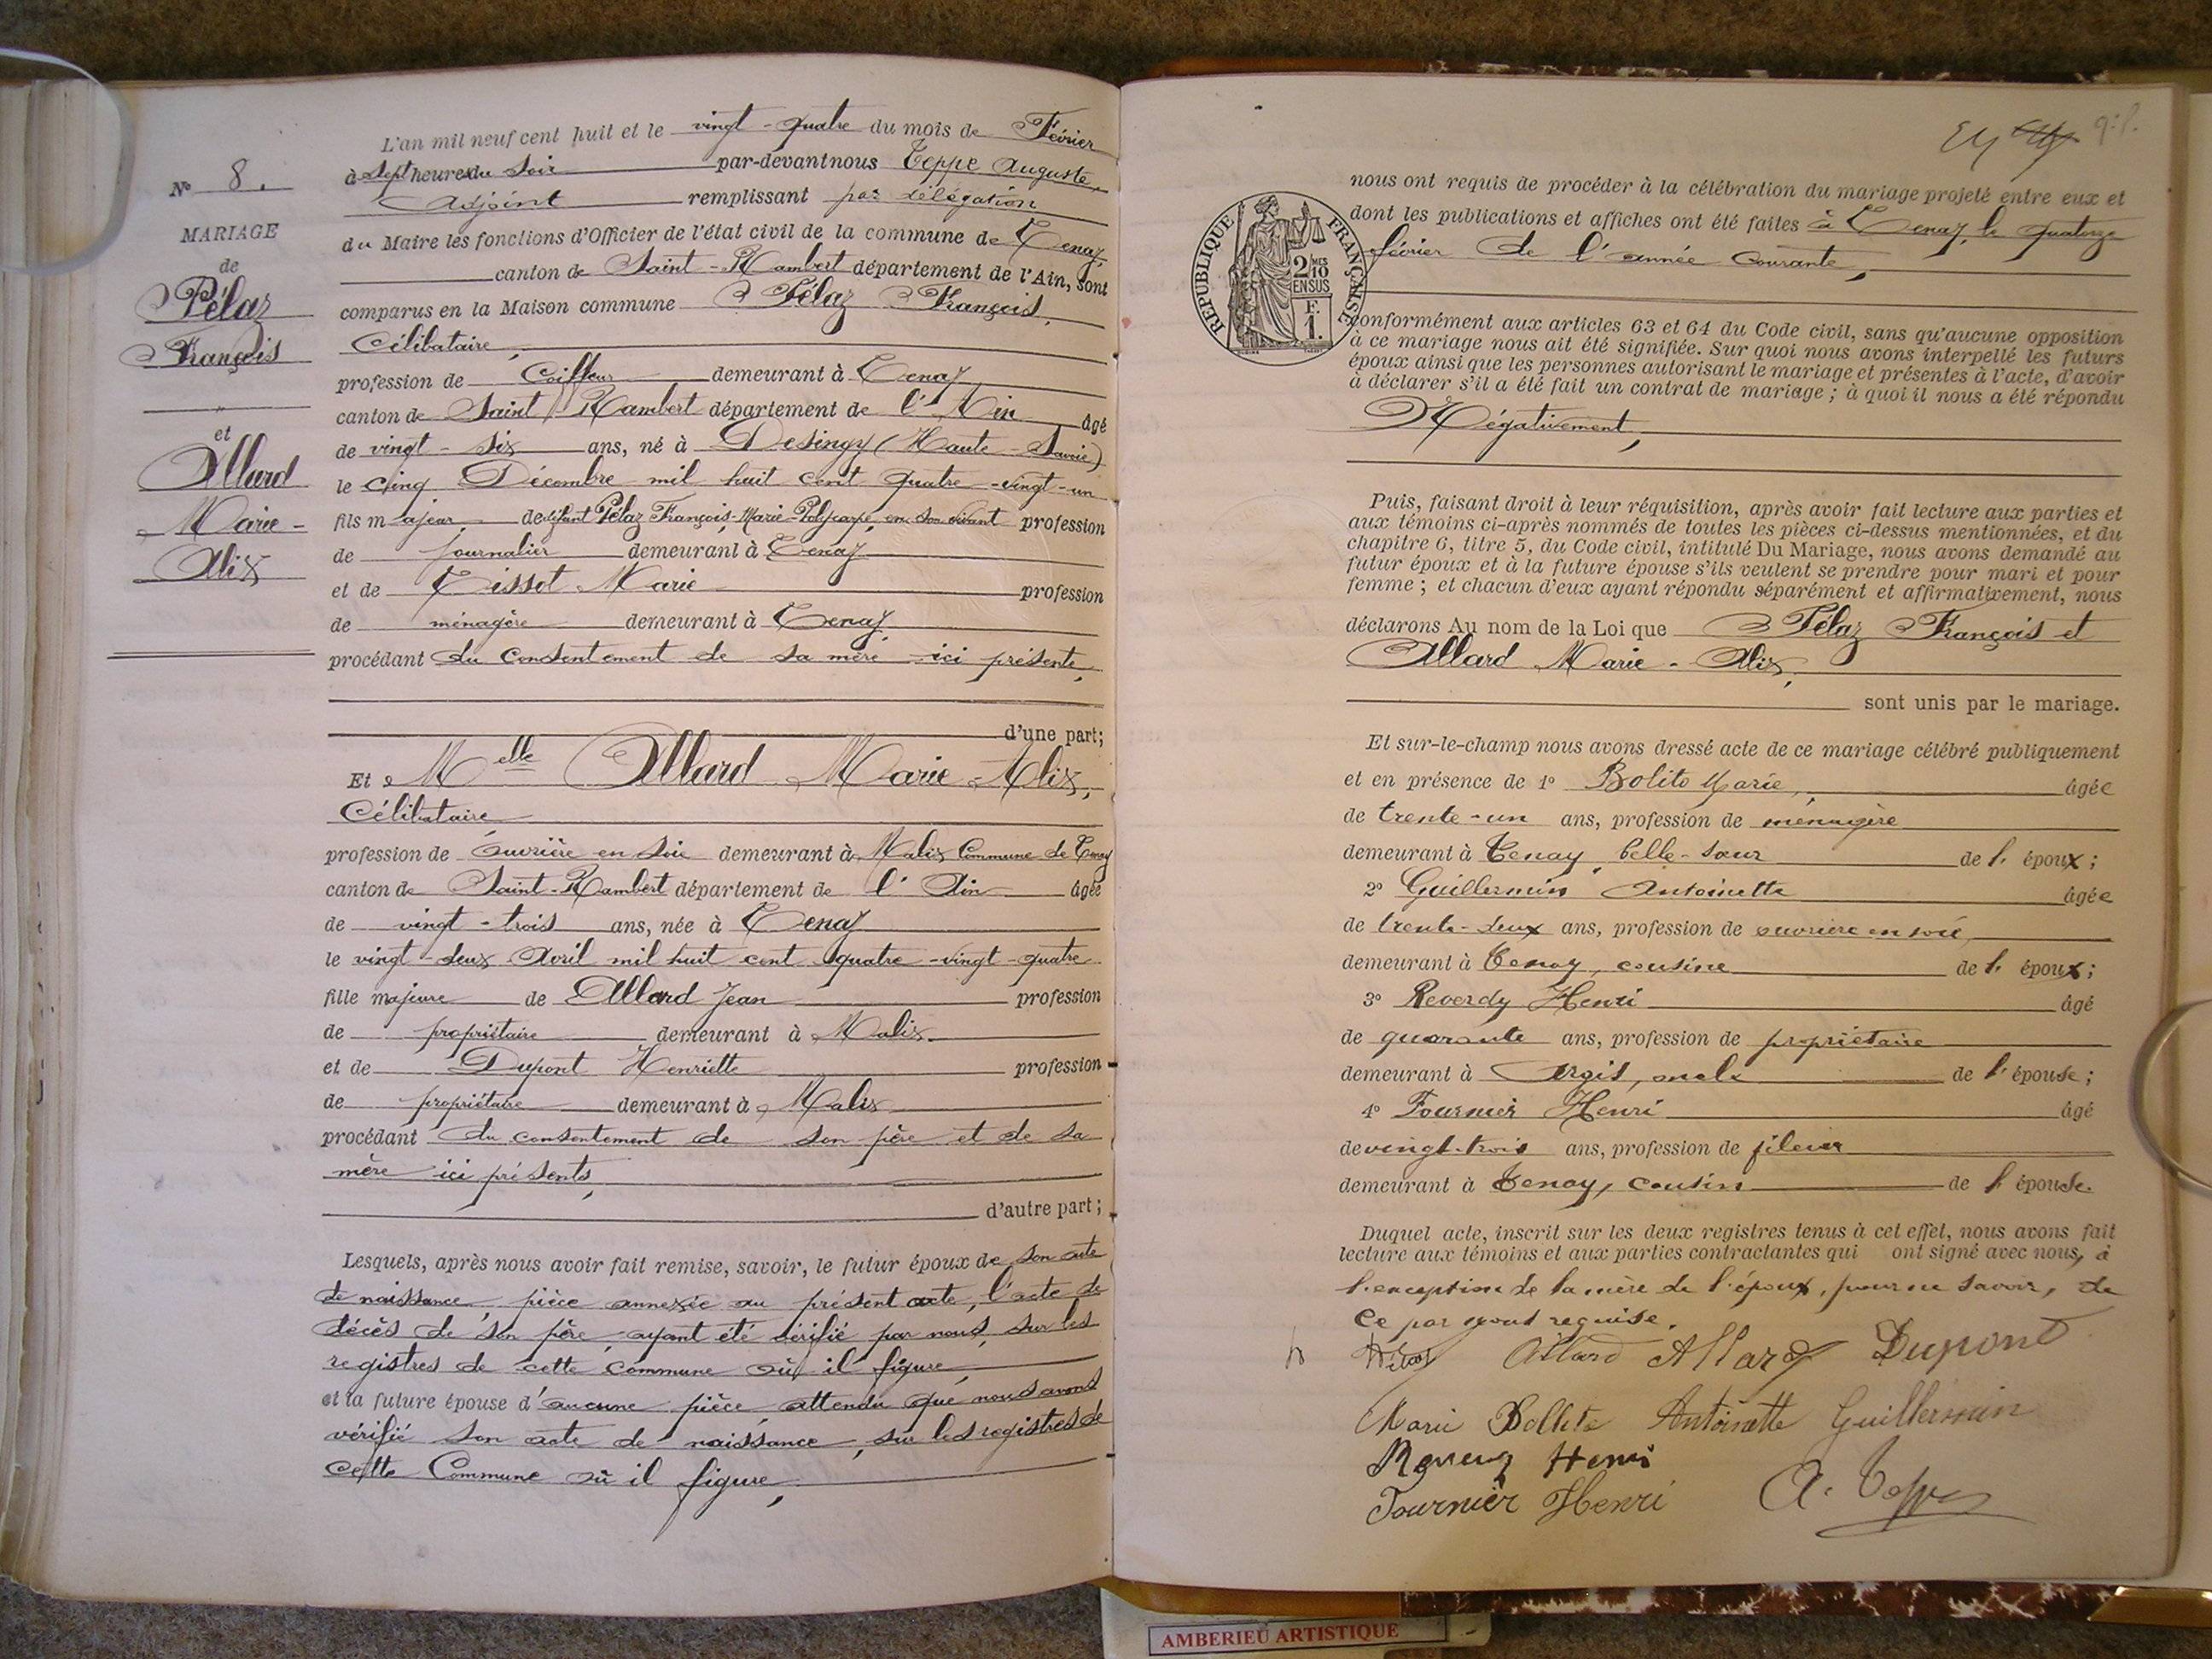 L'an mil neuf cent huit et le vingt-quatre du mois de Février
à sept heures du soir par-devant nous Teppe Auguste,
Adjoint remplissant par délégation
du Maire les fonctions d'Officier de l'état civil de la commune de Tenay,
canton de Saint-Rambert département de l'Ain, sont
comparus en la Maison commune Pélaz François,
Célibataire,
profession de Coiffeur demeurant à Tenay
canton de Saint Rambert département de l'Ain âgé
de vingt-six ans, né à Desingy (Haute-Savoie)
le cinq Décembre mil huit cent quatre-vingt-un
fils majeur, de défunt Pélaz François-Marie-Polycarpe, en son vivant profession
de journalier demeurant à Tenay
et de Tissot Marie profession
de ménagère demeurant à Tenay
procédant du consentement de sa mère ici présente,
d'une part;
Et Melle Allard Marie-Alix,
Célibataire,
profession de Ouvrière en soie demeurant à Malix Commune de Tenay
canton de Saint-Rambert département de l'Ain âgée
de vingt-trois ans, née à Tenay
le vingt-deux Avril mil huit cent quatre-vingt-quatre
fille majeure de Allard Jean profession
de propriétaire demeurant à Malix.
et de Dupont Henriette profession
de propriétaire demeurant à Malix
procédant du consentement de son père et de sa
mère ici présents,
d'autre part;
Lesquels, après nous avoir fait remise, savoir, le futur époux de son acte
de naissance, pièce annexée au présent acte, l'acte de
décès de son père, ayant été vérifié par nous, sur les
registres de cette commune où il figure,
et la future épouse d'aucune pièce, attendu que nous avons
vérifié son acte de naissance, sur les registres de
cette Commune où il figure,
No 8.
MARIAGE
de
Pélaz
François
"
et
Allard
Marie-
Alix
nous ont requis de procéder à la célébration du mariage projeté entre eux et
dont les publications et affiches ont été faites à Tenay, le quatorze
février de l'année courante,
RÉPUBLIQUE FRANÇAISE
2 MES
10
EN SUS
F.
1.
conformément aux articles 63 et 64 du Code civil, sans qu'aucune opposition
à ce mariage nous ait été signifiée. Sur quoi nous avons interpellé les futurs
époux ainsi que les personnes autorisant le mariage et présentes à l'acte, d'avoir
à déclarer s'il a été fait un contrat de mariage; à quoi il nous a été répondu
Négativement,
Puis, faisant droit à leur réquisition, après avoir fait lecture aux parties et
aux témoins ci-après nommés de toutes les pièces ci-dessus mentionnées, et du
chapitre 6, titre 5, du Code civil, intitulé Du Mariage, nous avons demandé au
futur époux et à la future épouse s'ils veulent se prendre pour mari et pour
femme; et chacun d'eux ayant répondu séparément et affirmativement, nous
déclarons Au nom de la Loi que Pélaz François et
Allard Marie-Alix,
sont unis par le mariage.
Et sur-le-champ nous avons dressé acte de ce mariage célébré publiquement
et en présence de 1o Bolito Marie, âgée
de trente-un ans, profession de ménagère
demeurant à Tenay, belle-sœur de l' époux;
2o Guillermin Antoinette âgée
de trente-deux ans, profession de ouvrière en soie,
demeurant à Tenay, cousine de l' époux;
3o Reverdy Henri âgé
de quarante ans, profession de propriétaire
demeurant à Argis, oncle de l'épouse;
4o Fournier Henri âgé
de vingt-trois ans, profession de fileur
demeurant à Tenay, cousin de l' épouse.
Duquel acte, inscrit sur les deux registres tenus à cet effet, nous avons fait
lecture aux témoins et aux parties contractantes qui ont signé avec nous, à
l'exception de la mère de l'époux, pour ne savoir, de
ce par nous requise.
Pélaz Allard Allard Dupont
Marie Bollito Antoinette Guillermin
Henri
Fournier Henri A. Teppe
AMBERIEU ARTISTIQUE